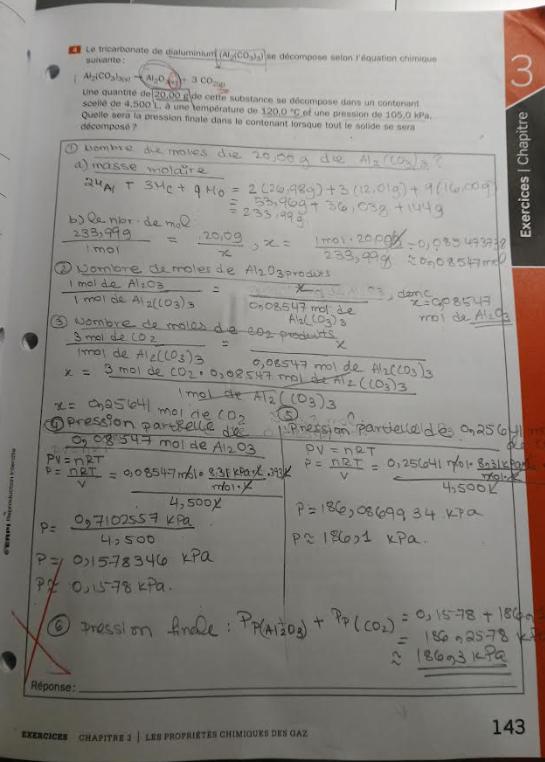 4 Le tricarbonate de dialuminium (Al₂(CO₃)₃) se décompose selon l'équation chimique
suivante :
Al₂(CO₃)₃(s) → Al₂O₃(s) + 3 CO₂(g)
Une quantité de 20,00 g de cette substance se décompose dans un contenant
scellé de 4,500 L, à une température de 120,0 °C et une pression de 105,0 kPa.
Quelle sera la pression finale dans le contenant lorsque tout le solide se sera
décomposé ?
3
Exercices | Chapitre
① Nombre de moles de 20,00g de Al₂(CO₃)₃ ?
a) masse molaire
2 MAl + 3Mc + 9 Mo = 2(26,98g) + 3(12,01g) + 9(16,00g)
= 53,96g + 36,03g + 144g
= 233,99g
b) le nbr. de mol
233,99g / 1 mol = 20,0g / x , x = 1 mol · 20,00g / 233,99g = 0,085473738
≈ 0,08547 mol
② Nombre de moles de Al₂O₃ produits
1 mol de Al₂O₃ / 1 mol de Al₂(CO₃)₃ = x / 0,08547 mol de Al₂(CO₃)₃ , donc x = 0,08547 mol de Al₂O₃
③ Nombre de moles de CO₂ produits
3 mol de CO₂ / 1 mol de Al₂(CO₃)₃ = x / 0,08547 mol de Al₂(CO₃)₃
x = 3 mol de CO₂ · 0,08547 mol de Al₂(CO₃)₃ / 1 mol de Al₂(CO₃)₃
x = 0,25641 mol de CO₂
④ Pression partielle de
0,08547 mol de Al₂O₃
PV = nRT
P = nRT / V = 0,08547 mol · 8,31 kPa / mol·K / 4,500
P = 0,7102557 kPa / 4,500
P = 0,1578346 kPa
P ≈ 0,1578 kPa.
⑤
Pression partielle de 0,25641
PV = nRT
P = nRT / V = 0,25641 mol · 8,31 kPa / mol·K / 4,500
P = 186,0869934 kPa
P ≈ 186,1 kPa.
⑥ Pression finale : Pp(Al₂O₃) + Pp(CO₂) = 0,1578 + 186,
= 186,2578 kPa
≈ 186,3 kPa
Réponse :
©ERPI Reproduction interdite
EXERCICES CHAPITRE 3 | LES PROPRIÉTÉS CHIMIQUES DES GAZ
143